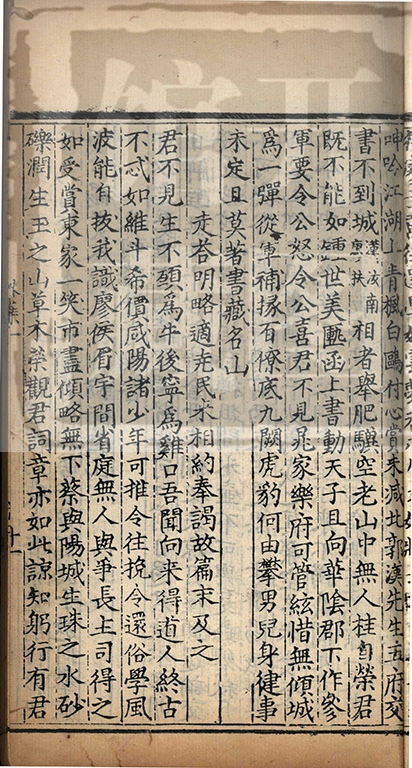 呻吟江湖上青楓白鷗付心賞未減北郭漢先生五府交
書不到城漢汝南廖扶相者舉肥驥空老山中無人桂自榮君
既不能如鍾世美匭函上書動天子且向華陰郡下作參
軍要令公怒令公喜君不見晁家樂府可管絃惜無傾城
為一彈從軍補掾百僚底九闕虎豹何由攀男兒身健事
未定且莫著書藏名山
走荅明略適堯民来相約奉謁故篇末及之
君不見生不願為牛後寧為雞口吾聞向来得道人終古
不忒如維斗希價咸陽諸少年可推令往挽令還俗學風
波能自拔我識廖侯眉宇間省庭無人與爭長主司得之
如受賞東家一笑市盡傾略無下蔡與陽城生珠之水砂
礫潤生玉之山草木榮觀君詞章亦如此諒知躬行有君